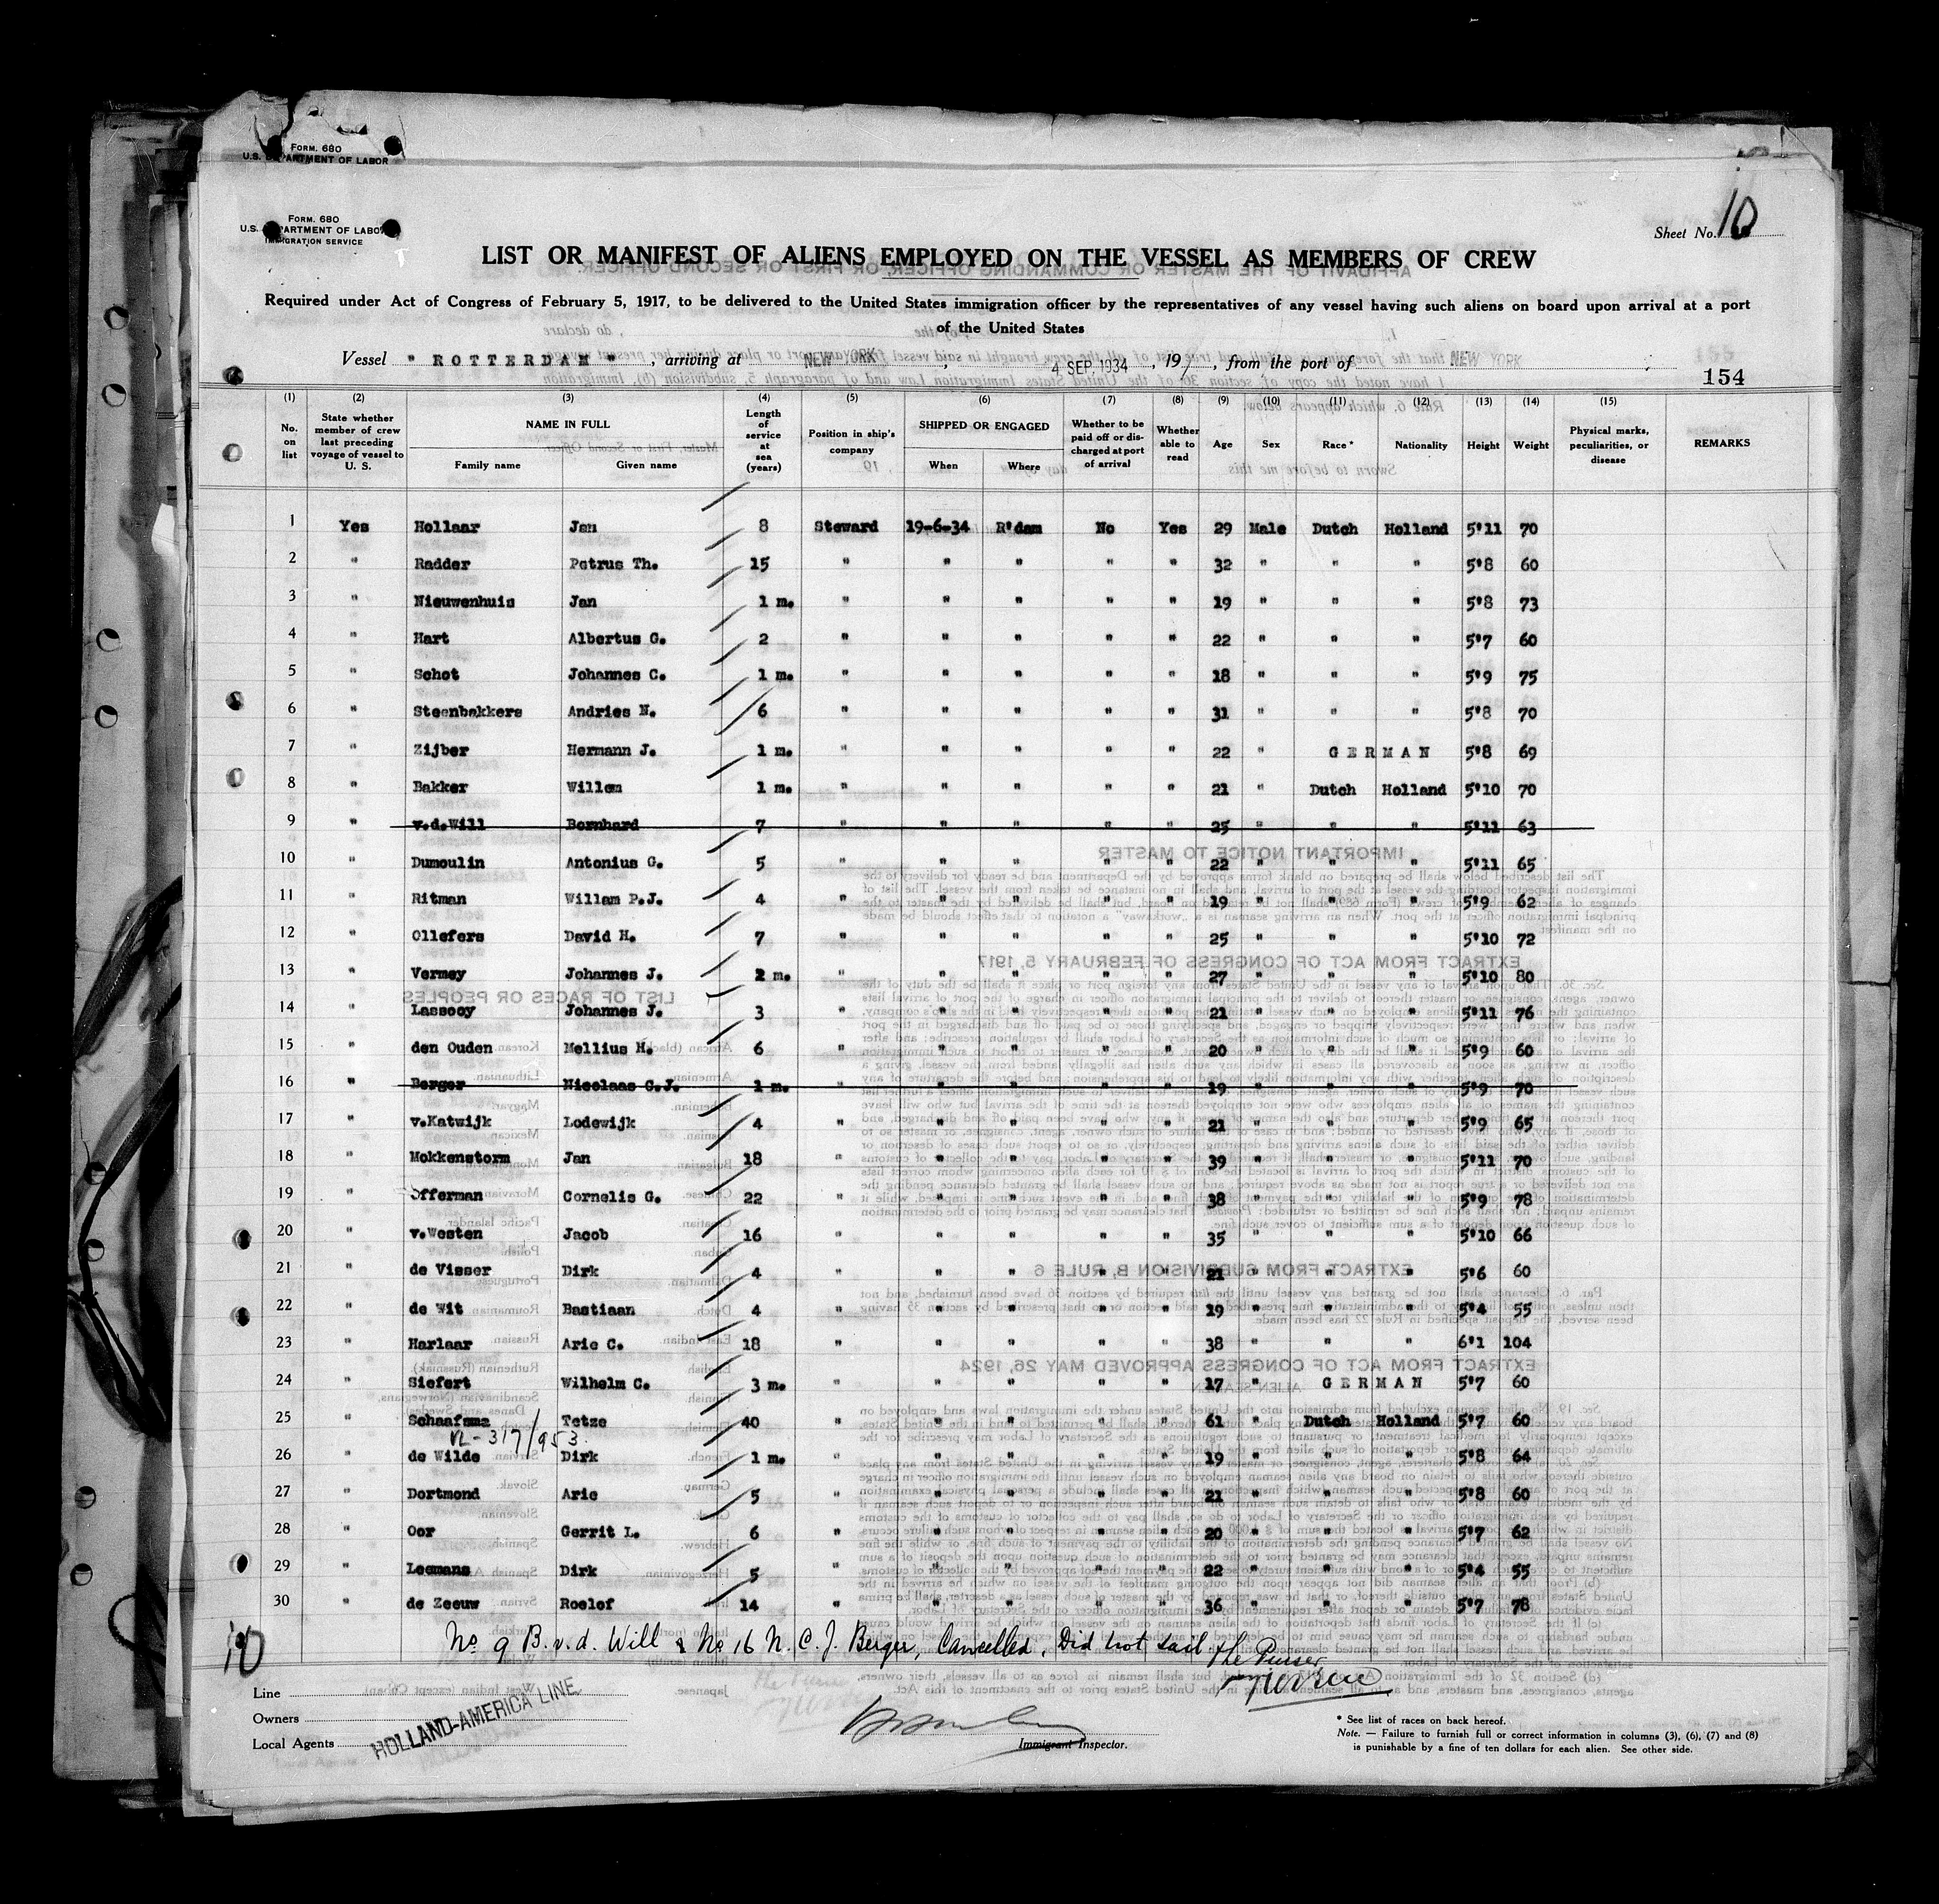 FORM. 680
U.S. DEPARTMENT OF LABOR
FORM. 680
U.S. DEPARTMENT OF LABOR
IMMIGRATION SERVICE
Sheet No. 10
LIST OR MANIFEST OF ALIENS EMPLOYED ON THE VESSEL AS MEMBERS OF CREW
Required under Act of Congress of February 5, 1917, to be delivered to the United States immigration officer by the representatives of any vessel having such aliens on board upon arrival at a port
of the United States
Vessel " ROTTERDAM ", arriving at NEW YORK, 4 SEP. 1934, 19, from the port of NEW YORK
154
(1) (2) (3) (4) (5) (6) (7) (8) (9) (10) (11) (12) (13) (14) (15)
No. on list State whether member of crew last preceding voyage of vessel to U. S. NAME IN FULL Length of service at sea (years) Position in ship's company SHIPPED OR ENGAGED Whether to be paid off or discharged at port of arrival Whether able to read Age Sex Race* Nationality Height Weight Physical marks, peculiarities, or disease REMARKS
Family name Given name When Where
1 Yes Hollaar Jan 8 Steward 19-6-34 R'dam No Yes 29 Male Dutch Holland 5'11 70
2 " Radder Petrus Th. 15 " " " " " 32 " " " 5'8 60
3 " Nieuwenhuis Jan 1 m. " " " " " 19 " " " 5'8 73
4 " Hart Albertus G. 2 " " " " " 22 " " " 5'7 60
5 " Schot Johannes C. 1 m. " " " " " 18 " " " 5'9 75
6 " Steenbakkers Andries N. 6 " " " " " 31 " " " 5'8 70
7 " Zijber Hermann J. 1 m. " " " " " 22 " GERMAN 5'8 69
8 " Bakker Willem 1 m. " " " " " 21 " Dutch Holland 5'10 70
9 " v.d.Will Bernhard 7 " " " " " 25 " " " 5'11 63
10 " Dumoulin Antonius G. 5 " " " " " 22 " " " 5'11 65
11 " Ritman Willam P.J. 4 " " " " " 19 " " " 5'9 62
12 " Ollefers David H. 7 " " " " " 25 " " " 5'10 72
13 " Vermey Johannes J. 2 m. " " " " " 27 " " " 5'10 80
14 " Lassooy Johannes J. 3 " " " " " 21 " " " 5'11 76
15 " den Ouden Mellius H. 6 " " " " " 20 " " " 5'9 60
16 " Berger Nicolaas C.J. 1 m. " " " " " 19 " " " 5'9 70
17 " v.Katwijk Lodewijk 4 " " " " " 21 " " " 5'9 65
18 " Mokkenstorm Jan 18 " " " " " 39 " " " 5'11 70
19 " Offerman Cornelis G. 22 " " " " " 38 " " " 5'9 78
20 " v.Westen Jacob 16 " " " " " 35 " " " 5'10 66
21 " de Visser Dirk 4 " " " " " 21 " " " 5'6 60
22 " de Wit Bastiaan 4 " " " " " 19 " " " 5'4 55
23 " Harlaar Arie C. 18 " " " " " 38 " " " 6'1 104
24 " Siefert Wilhelm C. 3 m. " " " " " 17 " GERMAN 5'7 60
25 " Schaafsma Tetze 40 " " " " " 61 " Dutch Holland 5'7 60
VL-317/953
26 " de Wilde Dirk 1 m. " " " " " 19 " " " 5'8 64
27 " Dortmond Arie 5 " " " " " 21 " " " 5'8 60
28 " Oor Gerrit L. 6 " " " " " 20 " " " 5'7 62
29 " Leemans Dirk 5 " " " " " 22 " " " 5'4 55
30 " de Zeeuw Roelof 14 " " " " " 36 " " " 5'7 78
10 No. 9 B. v. d. Will & No. 16 N. C. J. Berger, Cancelled. Did not sail. the Purser
Line
Owners
Local Agents
HOLLAND-AMERICA LINE
Immigrant Inspector.
* See list of races on back hereof.
Note. — Failure to furnish full or correct information in columns (3), (6), (7) and (8)
is punishable by a fine of ten dollars for each alien. See other side.